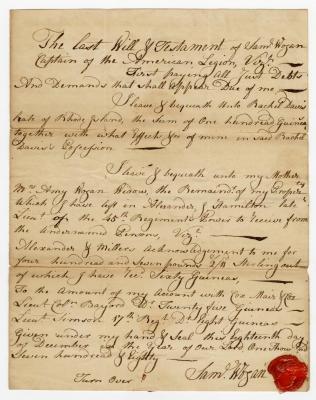 The Last Will & Testament of Saml. Wogan
Captain of the American Legion, Vizt.
First paying all Just Debts
And Demands that shall appear Due of me
I leave & bequeath Unto Rachel Davis
late of Rhode Island, the Sum of One hundred Guineas
together with what Effects &c of mine in said Rachel
Davis's Possession
I leave & bequeath unto my Mother
Mrs. Amy Wogan Widow, the Remaindr. of my Property
Which I have left in Alexander & Hamilton late
Lieut. of the 45th Regiments Power to Receive from
the Undernamed Persons, Vizt.
Alexander & Millers Acknowledgement to me for
four hundred and Seven pounds Sterling out
of which I have Recd. Sixty Guineas
To the Amount of my Account with Cox Mair & Co
Lieut. Coln. Bayard Do. Twenty five Guineas
Lieut. Simson 17th Regt. Do. Eight Guineas
Given under my hand & Seal this Eighteenth day
of December in the Year of our Lord One Thousand
Seven hundred & Eighty
Saml. Wogan
Turn Over